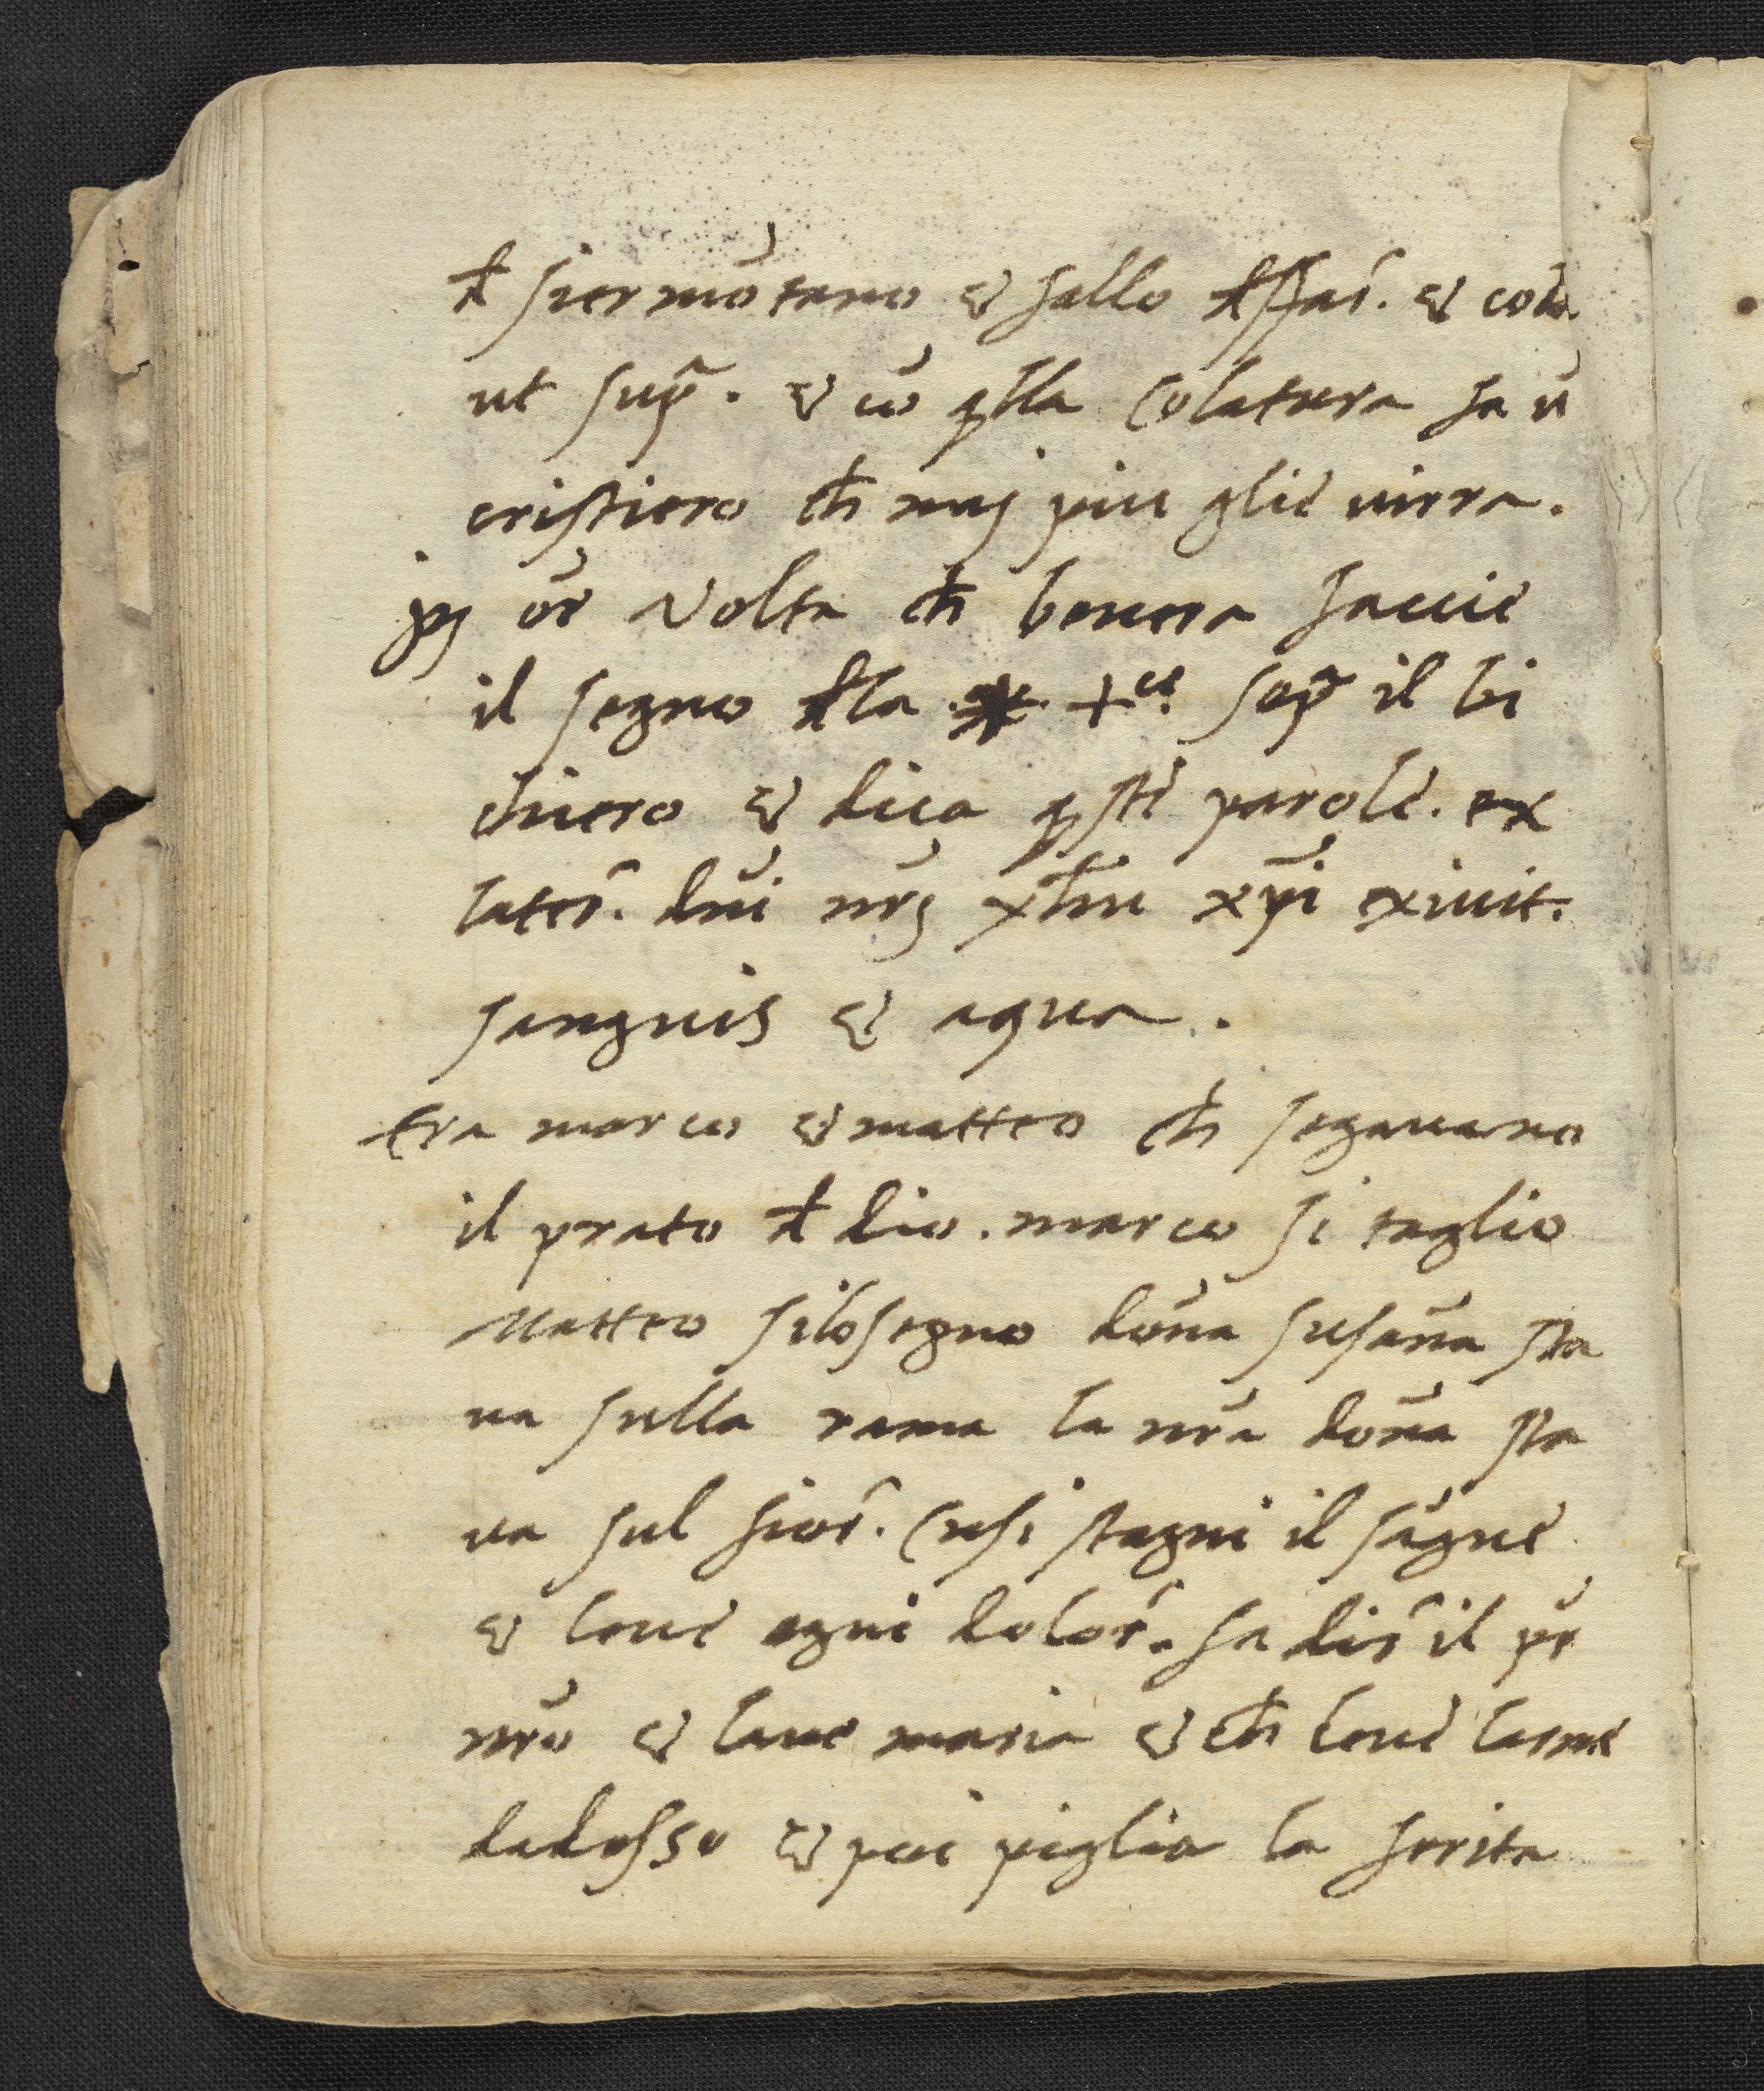 đ siermōtano & fallo đsfar̃. & cola
ut sup̃. & cō q̄lla colatura fa ũ
cristiero ch̄ maj piu glie uirra.
p̱ or̃ Volta ch̄ beuera faccie
il segno đla +ce sop̃ il bi
chiero & dica q̄ste parole. ex
later̃. dñi nr̃j yħu xp̃i exiuit.
sanguis & aqua.
tra marco & matteo ch̄ segauano
il prato đ dio. marco si taglio
Matteo silosegno dōna susāna sta
ua sulla rama la nr̃a dōna sta
ua sul fior̃. Cusi stagni il sāgue
& leue ogni dolor̃. fa dir̃ il pr̃
nr̃o & laue maria & ch̄ leue larme
dadosso & poi piglia la ferita